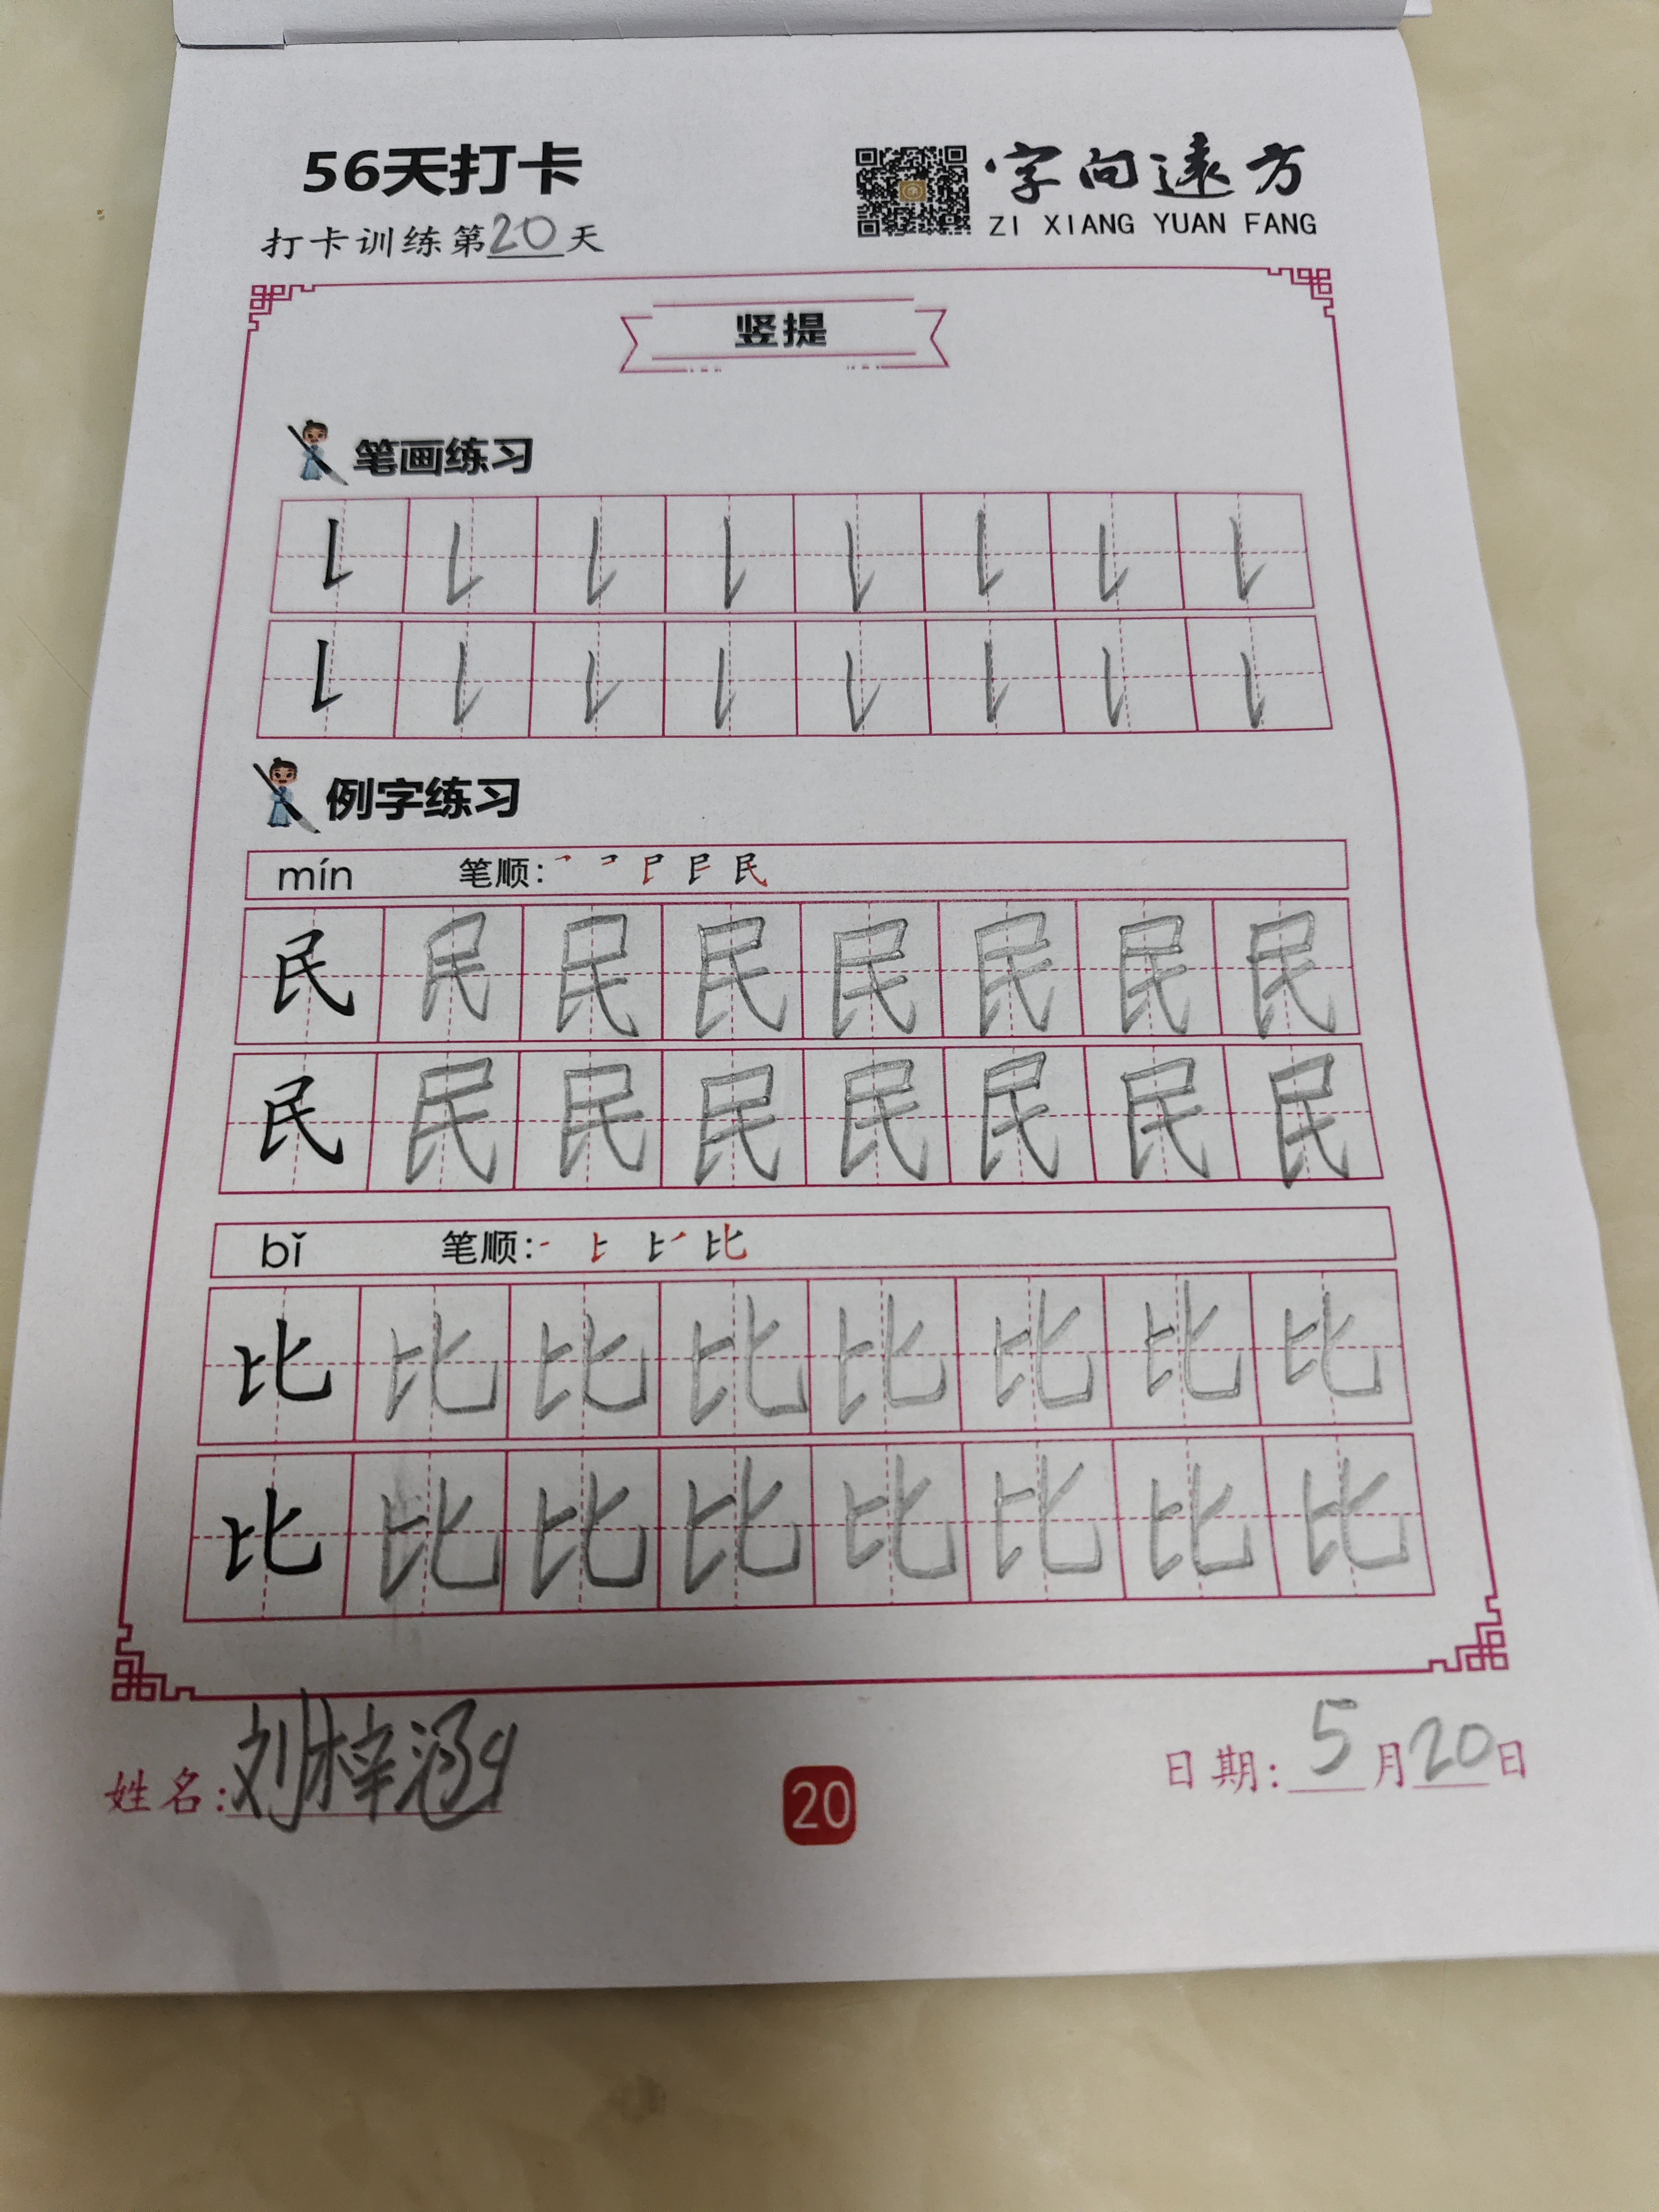 56天打卡
字向远方
ZI XIANG YUAN FANG
打卡训练第20天
竖提
笔画练习
例字练习
mín 笔顺:
民 民 民 民 民 民 民 民
民 民 民 民 民 民 民 民
bǐ 笔顺:
比 比 比 比 比 比 比 比
比 比 比 比 比 比 比 比
姓名:刘梓涵
20
日期:5月20日